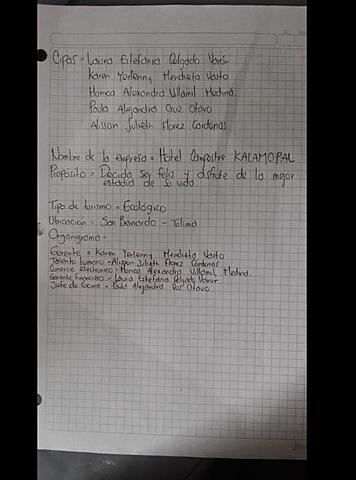 Cipas = Laura Estefania Delgado Varón
Karen Yerlenny Mendieta Vasto
Monica Alexandra Villamil Medina.
Paula Alejandra Cruz Otavo
Alisson Julieth Florez Cardenas
Nombre de la empresa = Hotel Campestre KALAMOPAL
Proposito = Decida ser feliz y disfrute de la mejor
estadia de su vida.
Tipo de turismo = Ecológico
Ubicación = San Bernardo - Tolima
Organigrama =
Gerente = Karen Yerlenny Mendieta Vasto
Talento humano = Alisson Julieth Florez Cardenas
Comercio electronico = Monica Alexandra Villamil Medina.
Gerente financiero = Laura Estefania Delgado Varon
Jefe de cocina = Paula Alejandra Cruz Otavo